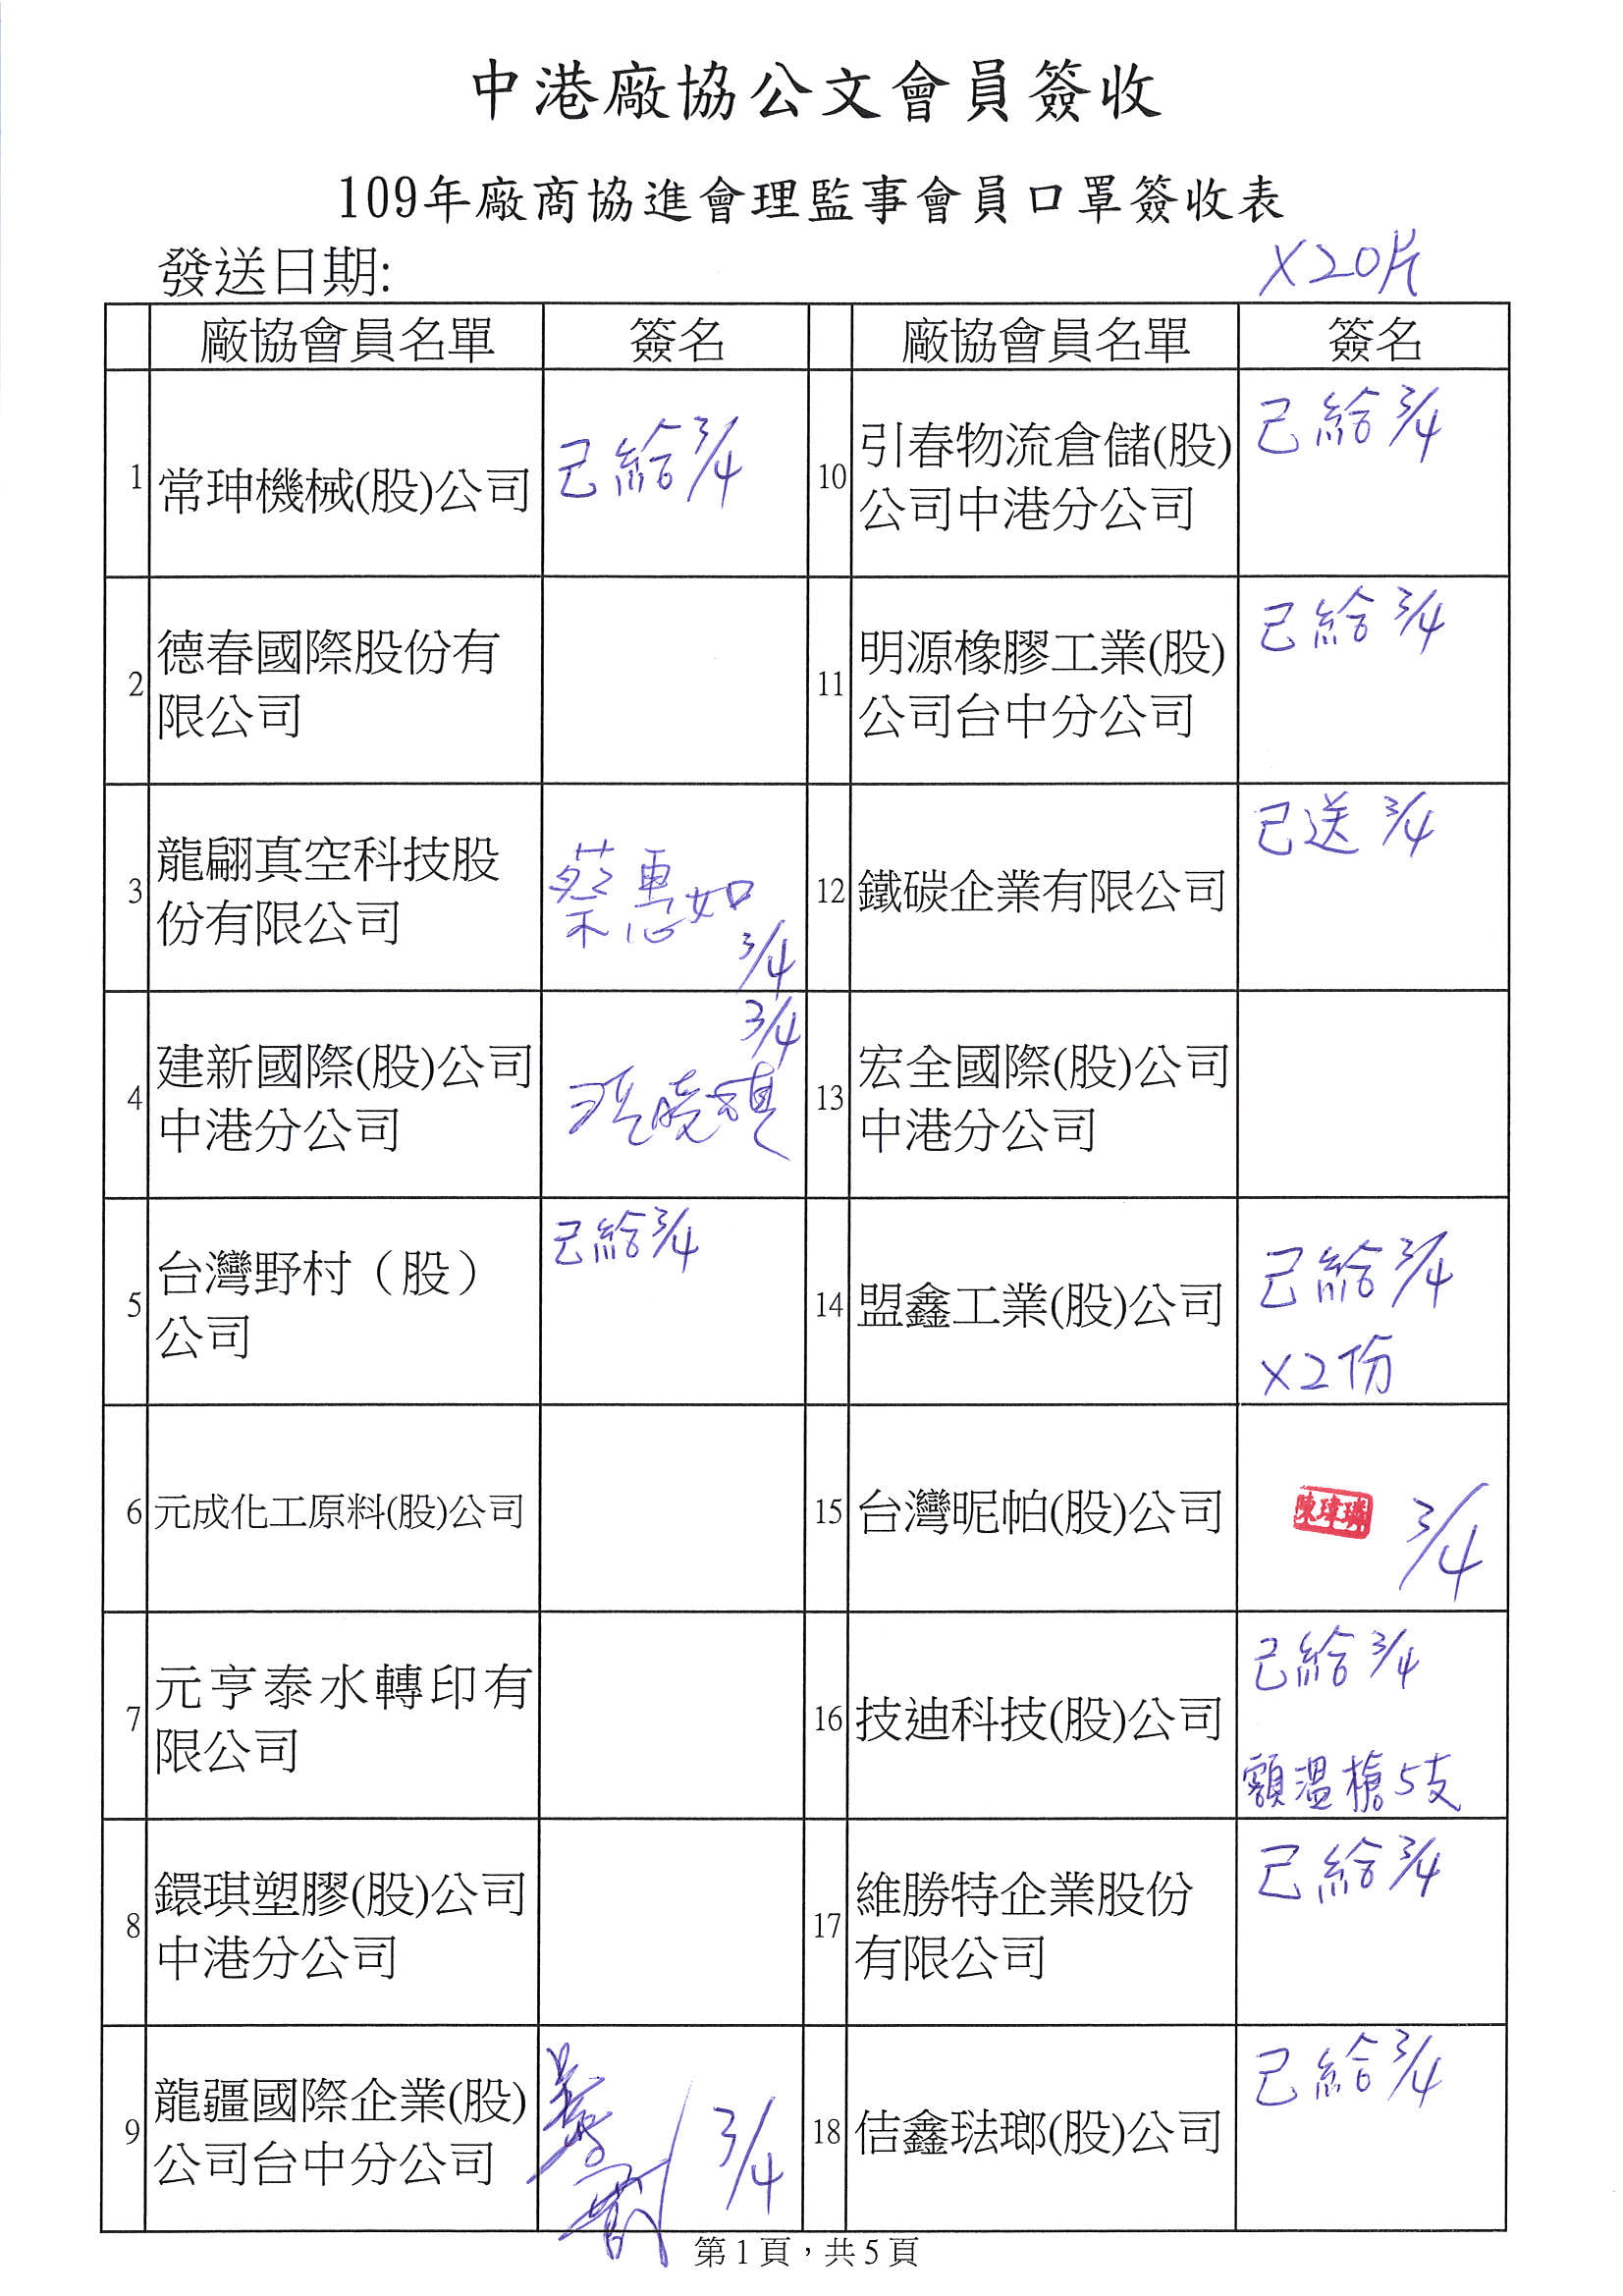 中港廠協公文會員簽收
109年廠商協進會理監事會員口罩簽收表
發送日期:
X20片
廠協會員名單 簽名 廠協會員名單 簽名
1 常珅機械(股)公司 已給3/4
10 引春物流倉儲(股)
公司中港分公司 已給3/4
2 德春國際股份有
限公司
11 明源橡膠工業(股)
公司台中分公司 已給3/4
3 龍翩真空科技股
份有限公司 蔡惠如
3/4
12 鐵碳企業有限公司 已送3/4
4 建新國際(股)公司
中港分公司 3/4
13 宏全國際(股)公司
中港分公司
5 台灣野村（股）
公司 已給3/4
14 盟鑫工業(股)公司 已給3/4
X2份
6 元成化工原料(股)公司
15 台灣昵帕(股)公司 陳瑋璘 3/4
7 元亨泰水轉印有
限公司
16 技迪科技(股)公司 已給3/4
額溫槍5支
8 鐶琪塑膠(股)公司
中港分公司
17 維勝特企業股份
有限公司 已給3/4
9 龍疆國際企業(股)
公司台中分公司 3/4
18 佶鑫琺瑯(股)公司 已給3/4
第1頁，共5頁